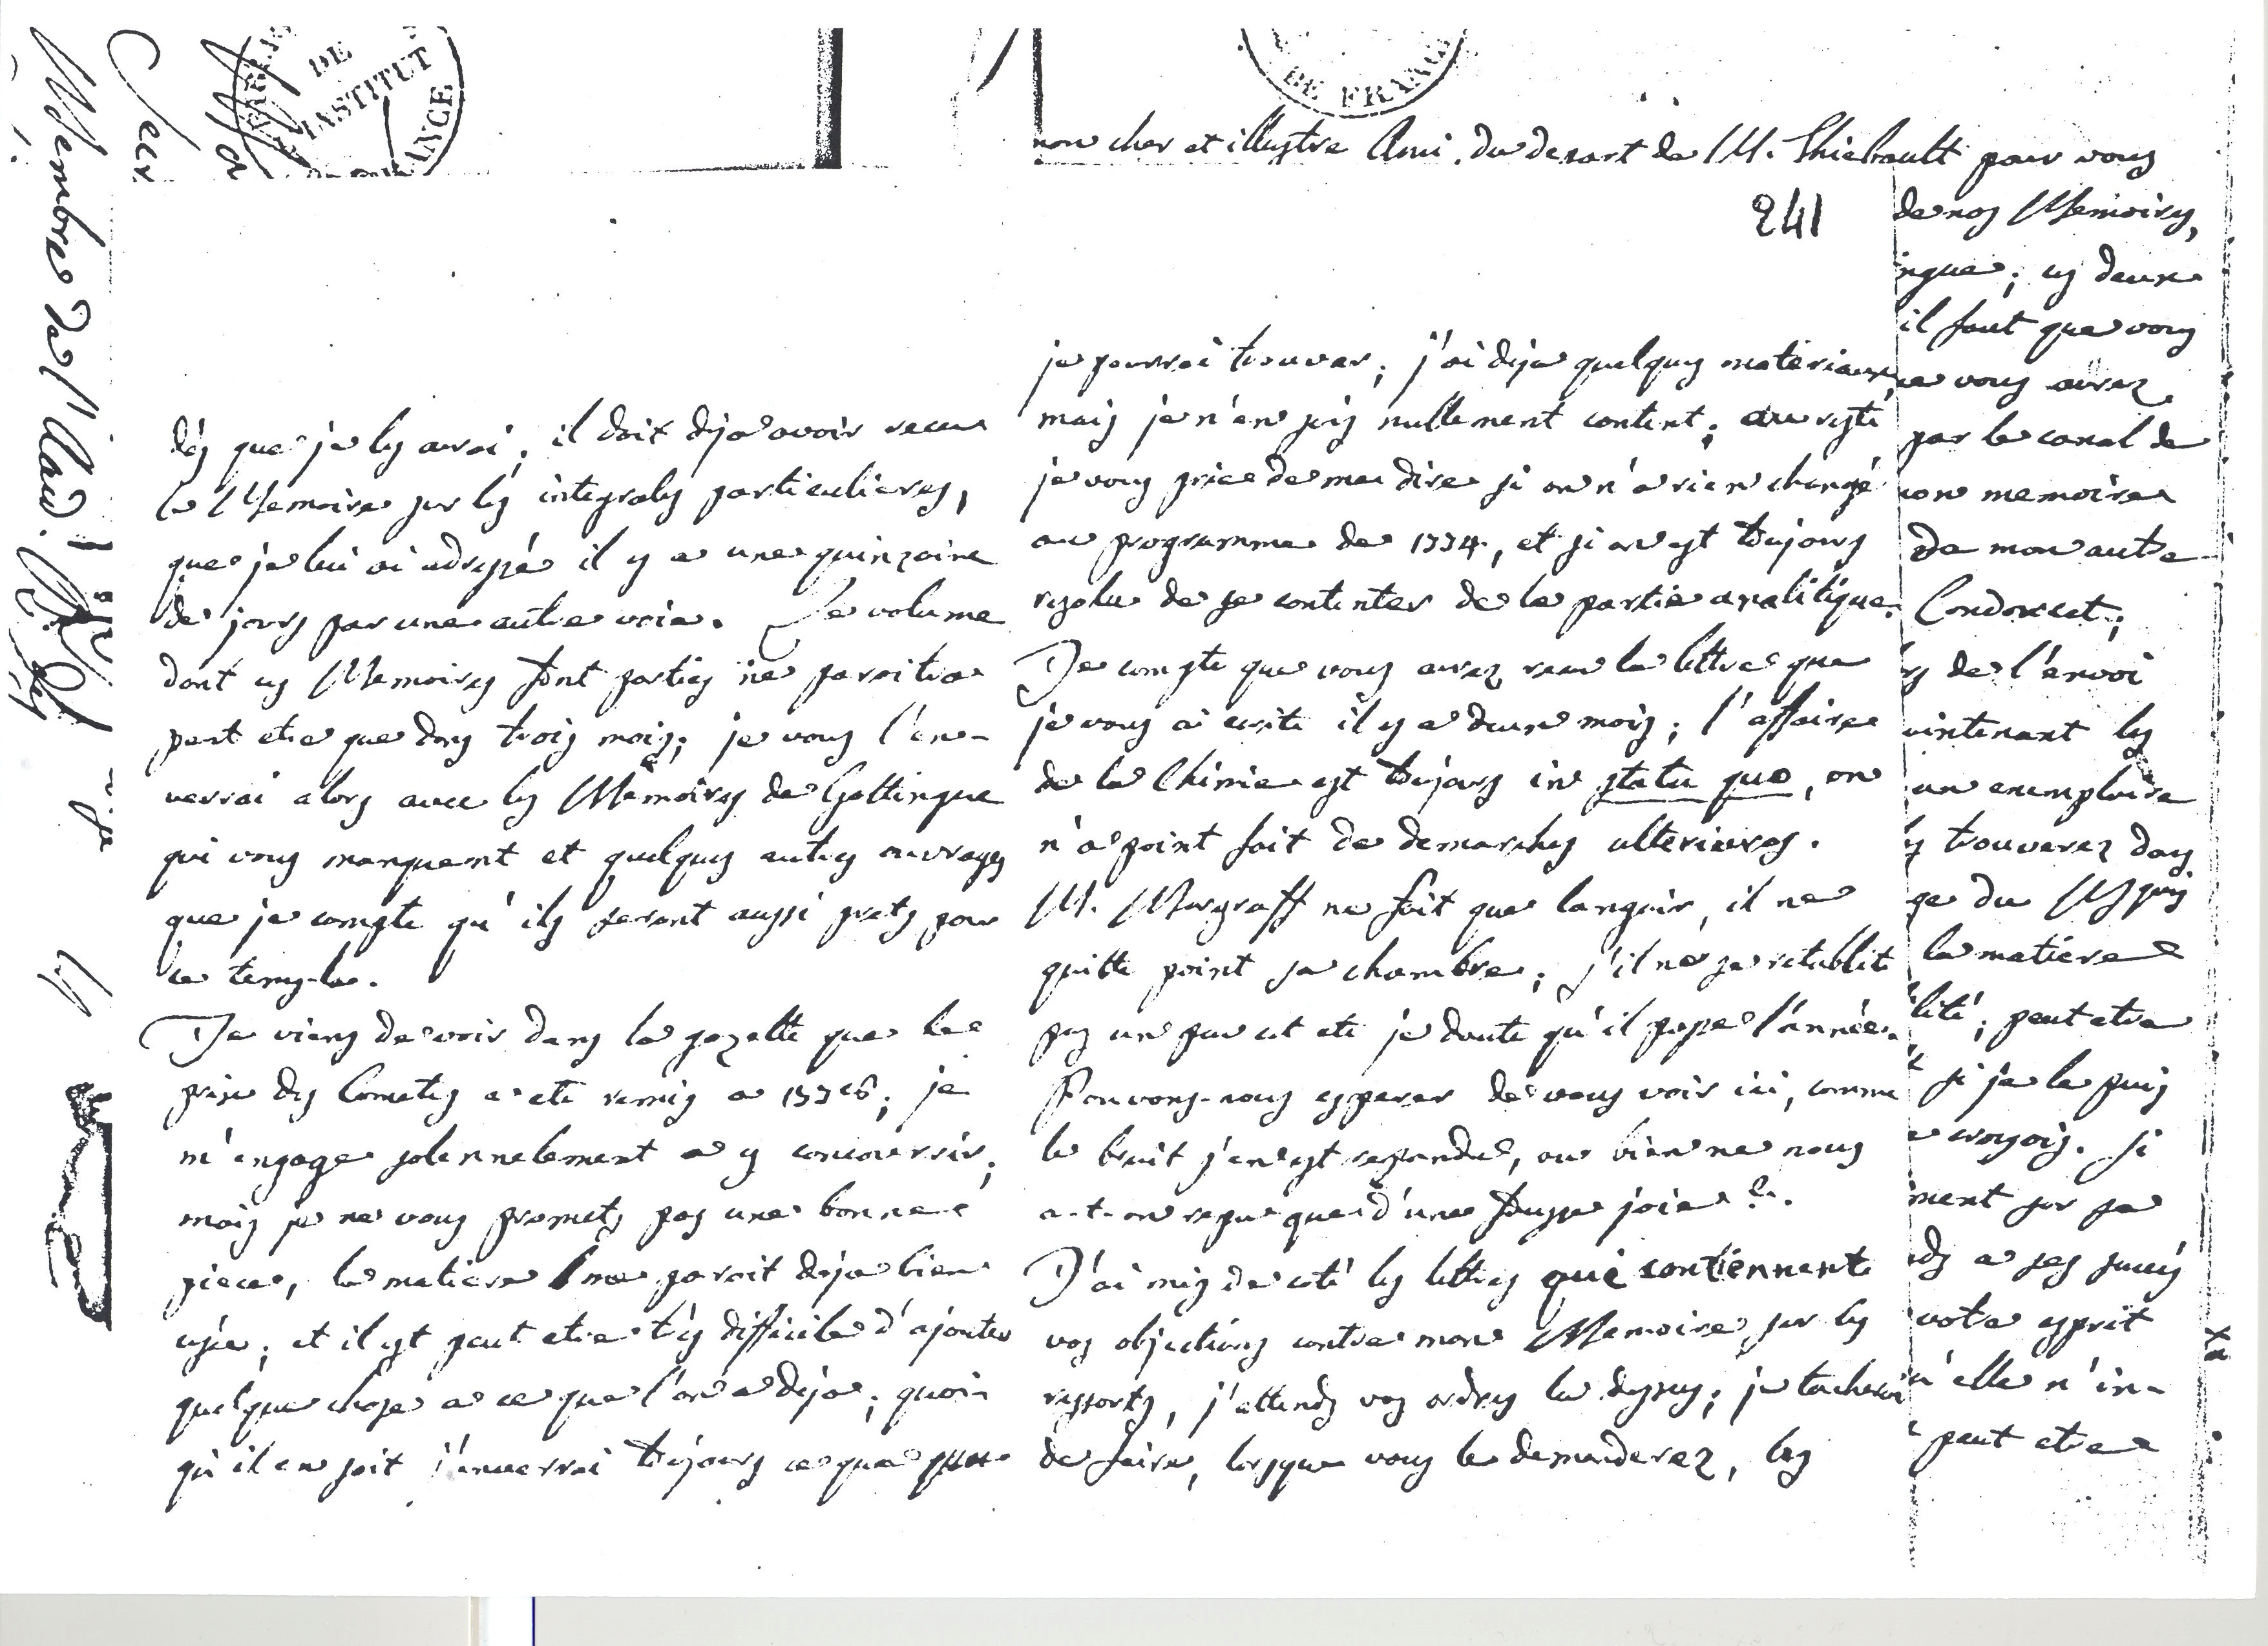 mon cher et illustre Ami, du depart de M. Thiebault pour vous
241
dès que je les aurai; il doit deja avoir recu
le Memoire sur les integrales particulieres,
que je lui ai adressé il y a une quinzaine
de jours par une autre voie. Le volume
dont ces Memoires font parties ne paroitra
peut etre que dans trois mois; je vous l'en-
verrai alors avec les Memoires de Gottingue
qui vous manquent et quelques autres ouvrages
que je compte qu'ils seront aussi prets pour
ce tems-la.
Je viens de voir dans la gazette que le
prix des Cometes a eté remis a 1776; je
m'engage solennelement a y concourrir;
mais je ne vous promets pas une bonne
piece, la matiere me paroit deja bien
usée; et il est peut etre très difficile d'ajouter
quelque chose a ce que l'on a deja; quoi-
qu'il en soit j'enverrai toujours ce que
je pourrai trouver; j'ai deja quelques materiaux,
mais je n'en suis nullement content; au reste
je vous prie de me dire si on n'a rien changé
au programme de 1774, et si on est toujours
resolu de se contenter de la partie analitique.
Je compte que vous aurez recu la lettre que
je vous ai ecrite il y a deux mois; l'affaire
de la Chimie est toujours in statu quo, on
n'a point fait de demarches ulterieures.
M. Margraff ne fait que languir, il ne
quitte point sa chambre; s'il ne se retablit
pas un peu cet eté je doute qu'il passe l'année.
Pouvons-nous esperer de vous voir ici, comme
le bruit s'en est repandu, ou bien ne nous
a-t-on repu que d'une fausse joie?
J'ai mis de coté les lettres qui contiennent
vos objections contre mon Memoire sur les
ressorts, j'attends vos ordres la dessus; je tacherai
de faire, lorsque vous le demanderez, les
de nos Memoires,
ngue; ces deux
il faut que vous
vous aurez
par le canal de
mon memoire
de mon autre
Condorcet;
de l'envoi
maintenant les
un exemplaire
trouverez dans
ge du Mquis
la matiere
lité; peut etre
si je le puis
croyois. Si
ment sur sa
nds a ses succès
votre esprit
qu'elle n'in-
peut etre
Membre de l'Acad.